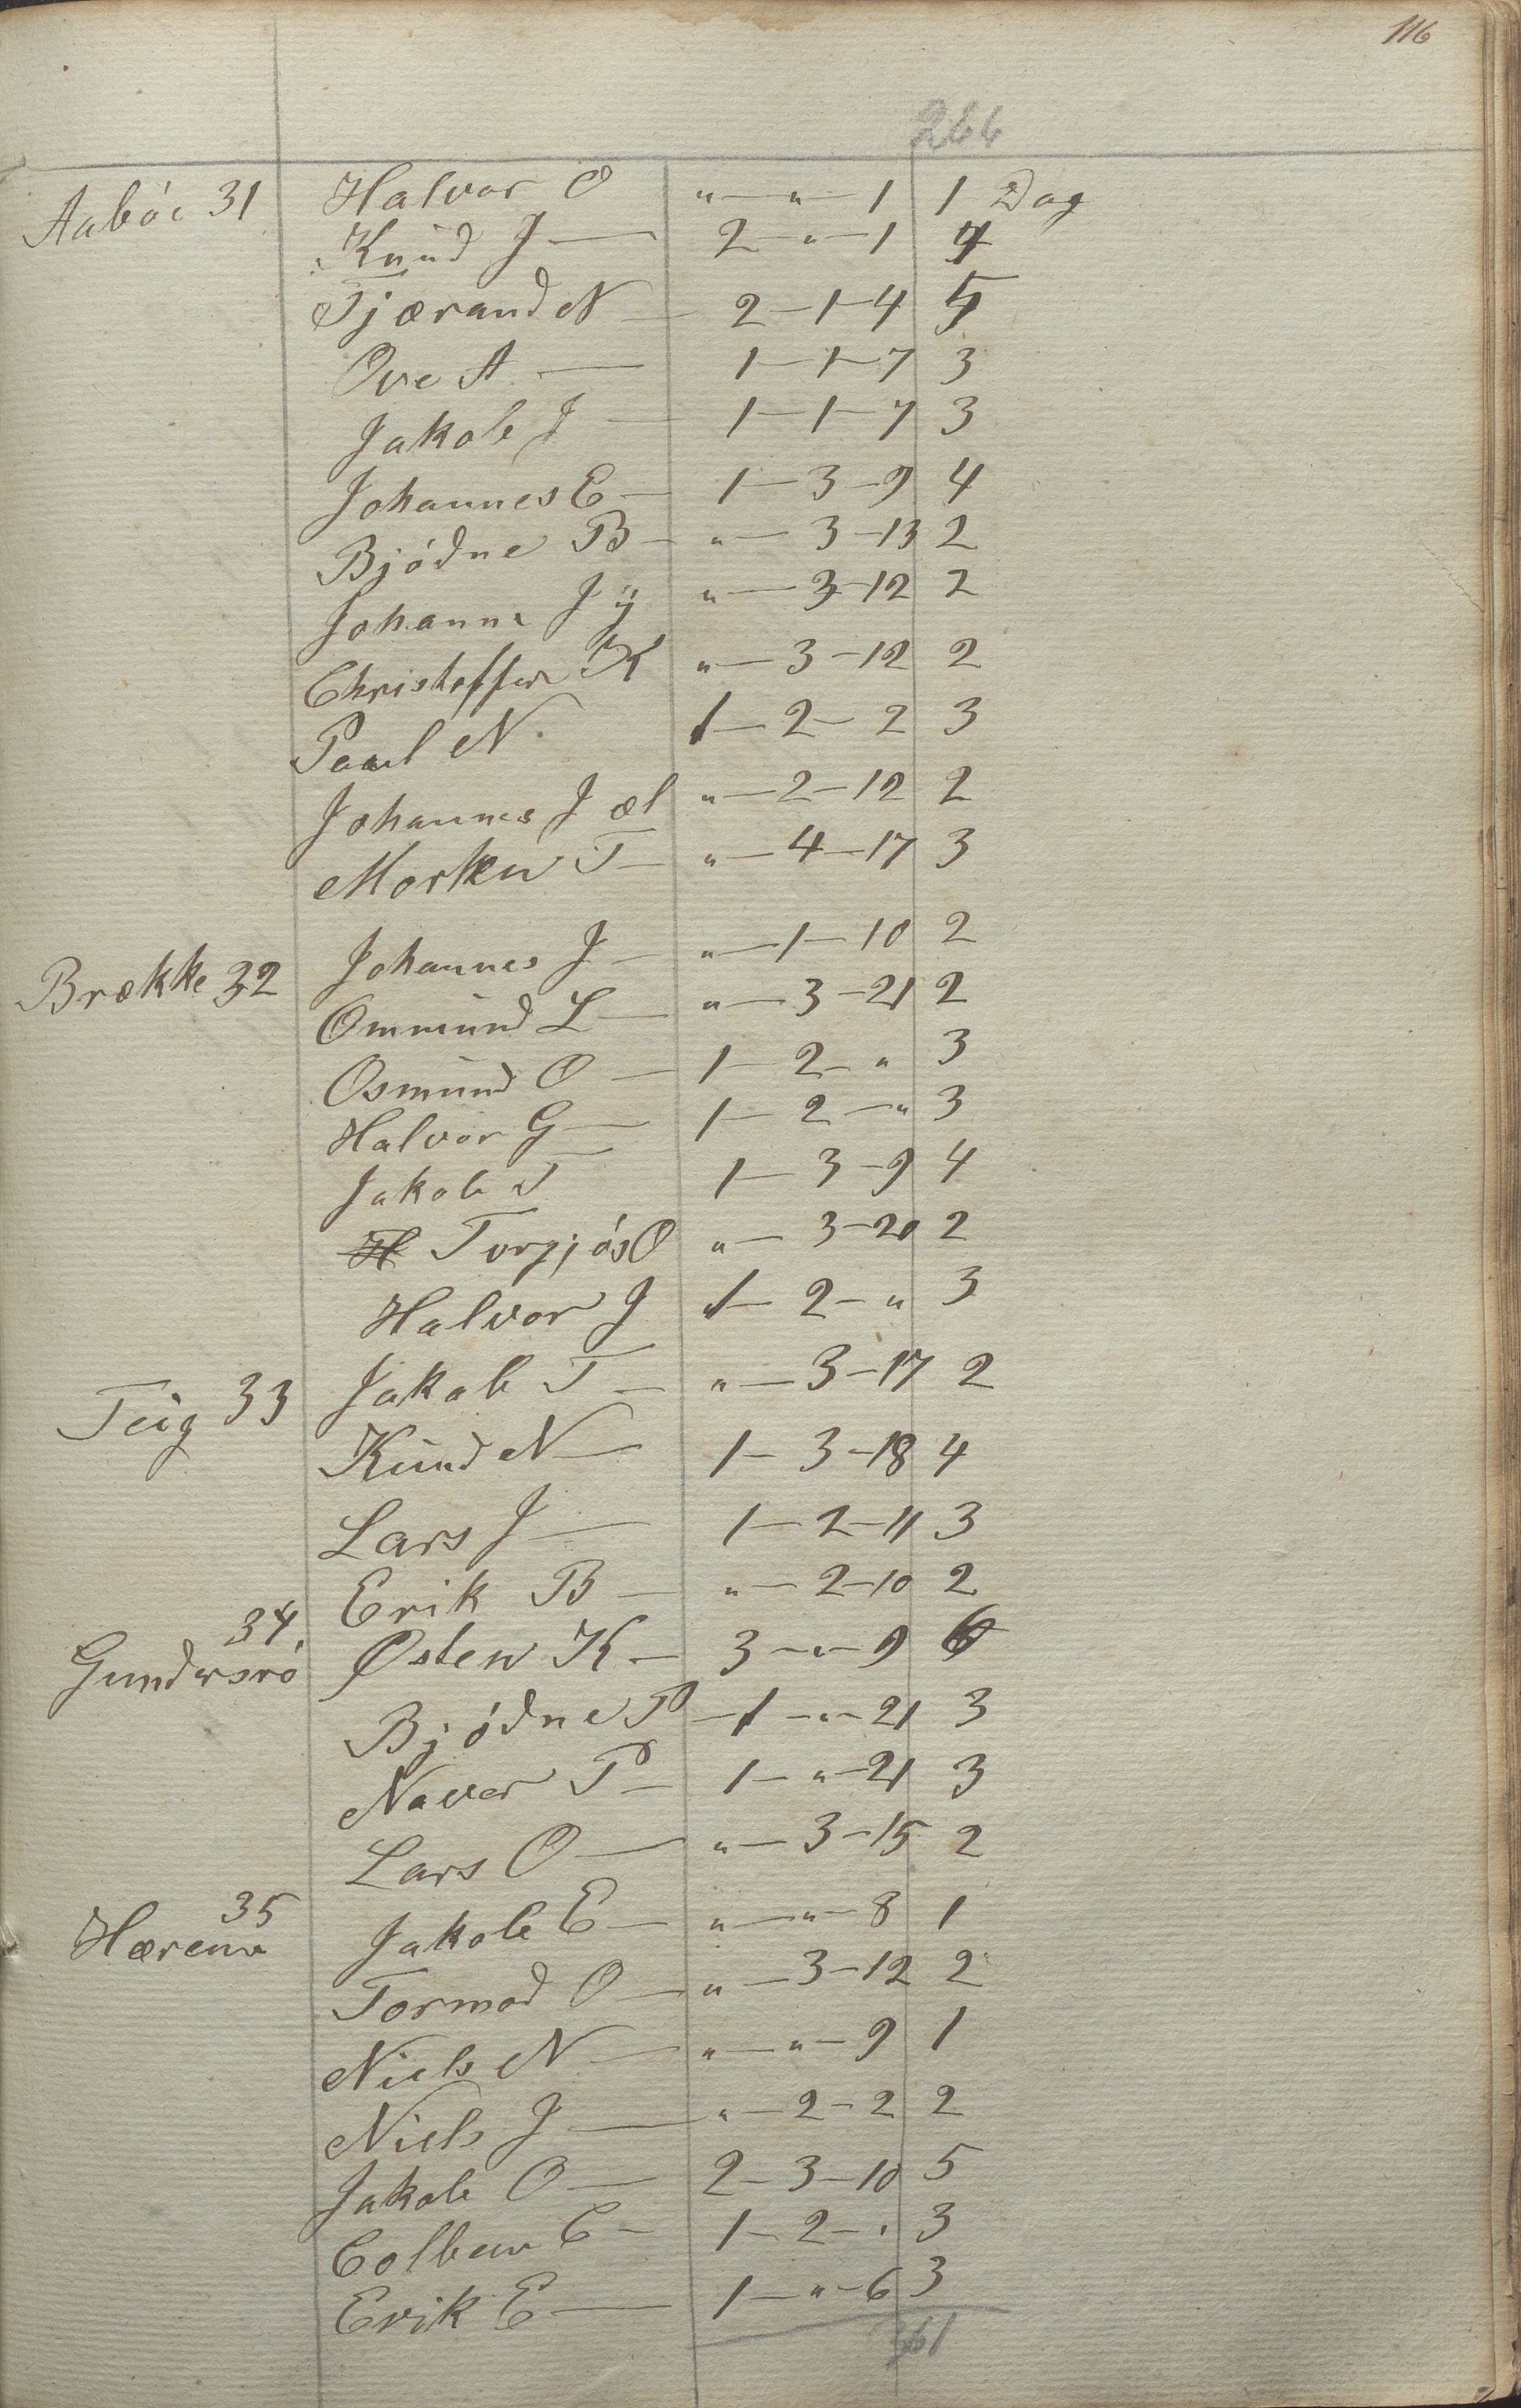 116
266
Aabóe 31 Halvor O „ — „ — 1 1 Dag
Knud J — 2 — „ — 1 4
Tjærand N — 2 — 1 — 4 5
Ove A — 1 — 1 — 7 3
Jakob J — 1 — 1 — 7 3
Johannes E — 1 — 3 — 9 4
Bjódne B — „ — 3 — 13 2
Johanns J ÿ „ — 3 — 12 2
Christoffer K „ — 3 — 12 2
Paul N 1 — 2 — 2 3
Johannes J æl „ — 2 — 12 2
Morten T — „ — 4 — 17 3
Brække 32 Johannes J — „ — 1 — 10 2
Ommund L — „ — 3 — 21 2
Osmund O — 1 — 2 — „ 3
Halvor G — 1 — 2 — „ 3
Jakob T 1 — 3 — 9 4
H Torgjós O „ — 3 — 20 2
Halvor J 1 — 2 — „ 3
Teig 33 Jakob T — „ — 3 — 17 2
Knud N — 1 — 3 — 18 4
Lars J — 1 — 2 — 11 3
Erik B — „ — 2 — 10 2
Gundersró 34 Østen K — 3 — „ — 9 6
Bjódne P — 1 — „ — 21 3
Naver P — 1 — „ — 21 3
Lars O — „ — 3 — 15 2
Hærem 35 Jakob E — „ — „ — 8 1
Tormod O — „ — 3 — 12 2
Niels N — „ — „ — 9 1
Niels J — „ — 2 — 2 2
Jakob O — 2 — 3 — 10 5
Colben C — 1 — 2 — „ 3
Erik E — 1 — „ — 6 3
361